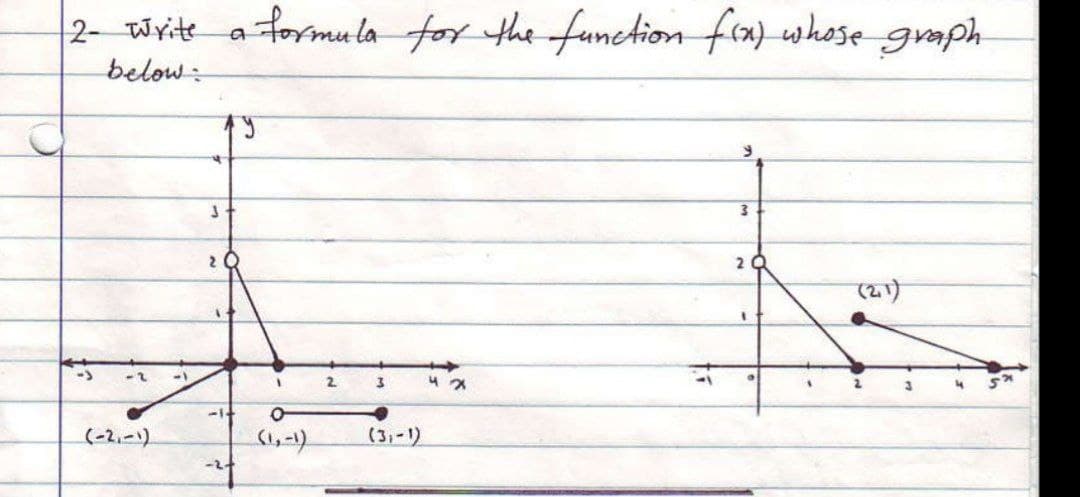 2- Write a formula for the function f(x) whose graph
below:
y
4
3
2
1
-3 -2 -1 1 2 3 4 x
-1
(-2,-1) (1,-1) (3,-1)
-2
y
3
2
(2,1)
1
-1 0 1 2 3 4 5 x